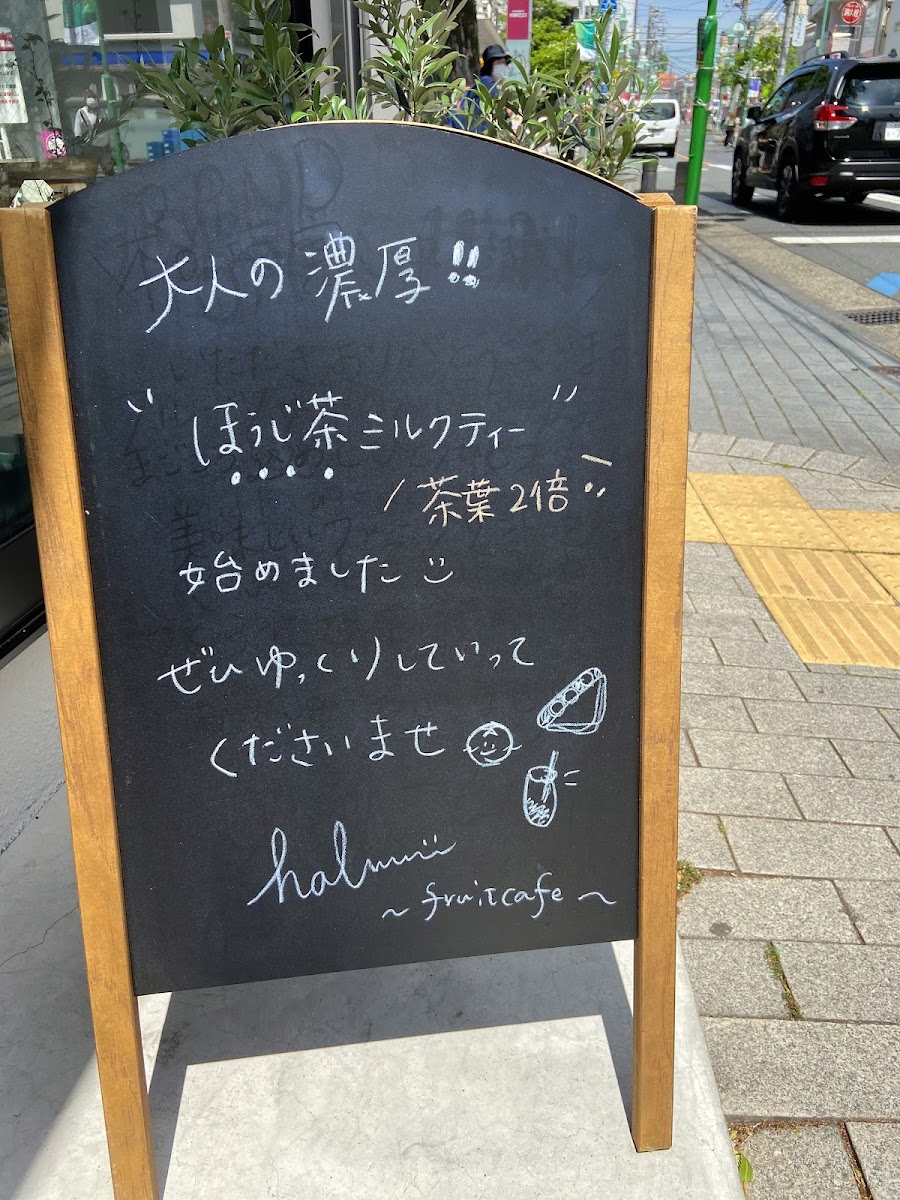 大人の濃厚!!
"ほうじ茶ミルクティー"
茶葉2倍
始めました
ぜひゆっくりしていって
くださいませ
~ fruitcafe ~